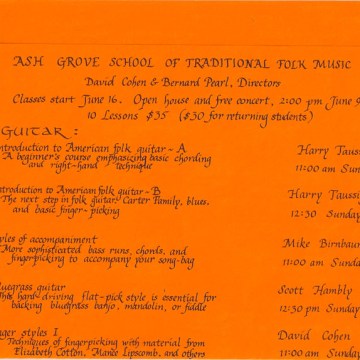 ASH GROVE SCHOOL OF TRADITIONAL FOLK MUSIC
David Cohen & Bernard Pearl, Directors
Classes start June 16. Open house and free concert, 2:00 pm June 9
10 Lessons $35 ($30 for returning students)
GUITAR:
ntroduction to American folk guitar - A Harry Taussi
A beginner's course emphasizing basic chording
and right-hand technique 11:00 am Sun
ntroduction to American folk guitar - B Harry Taussi
The next step in folk guitar, Carter Family, blues,
and basic finger-picking 12:30 Sunday
yles of accompaniment Mike Birnbau
More sophisticated bass runs, chords, and
fingerpicking to accompany your song-bag 11:00 am Sunda
luegrass guitar Scott Hambly
This hard-driving flat-pick style is essential for
backing bluegrass banjo, mandolin, or fiddle 12:30 pm Sunday
nger styles I David Cohen
Techniques of fingerpicking with material from
Elizabeth Cotton, Mance Lipscomb, and others 11:00 am Sunda